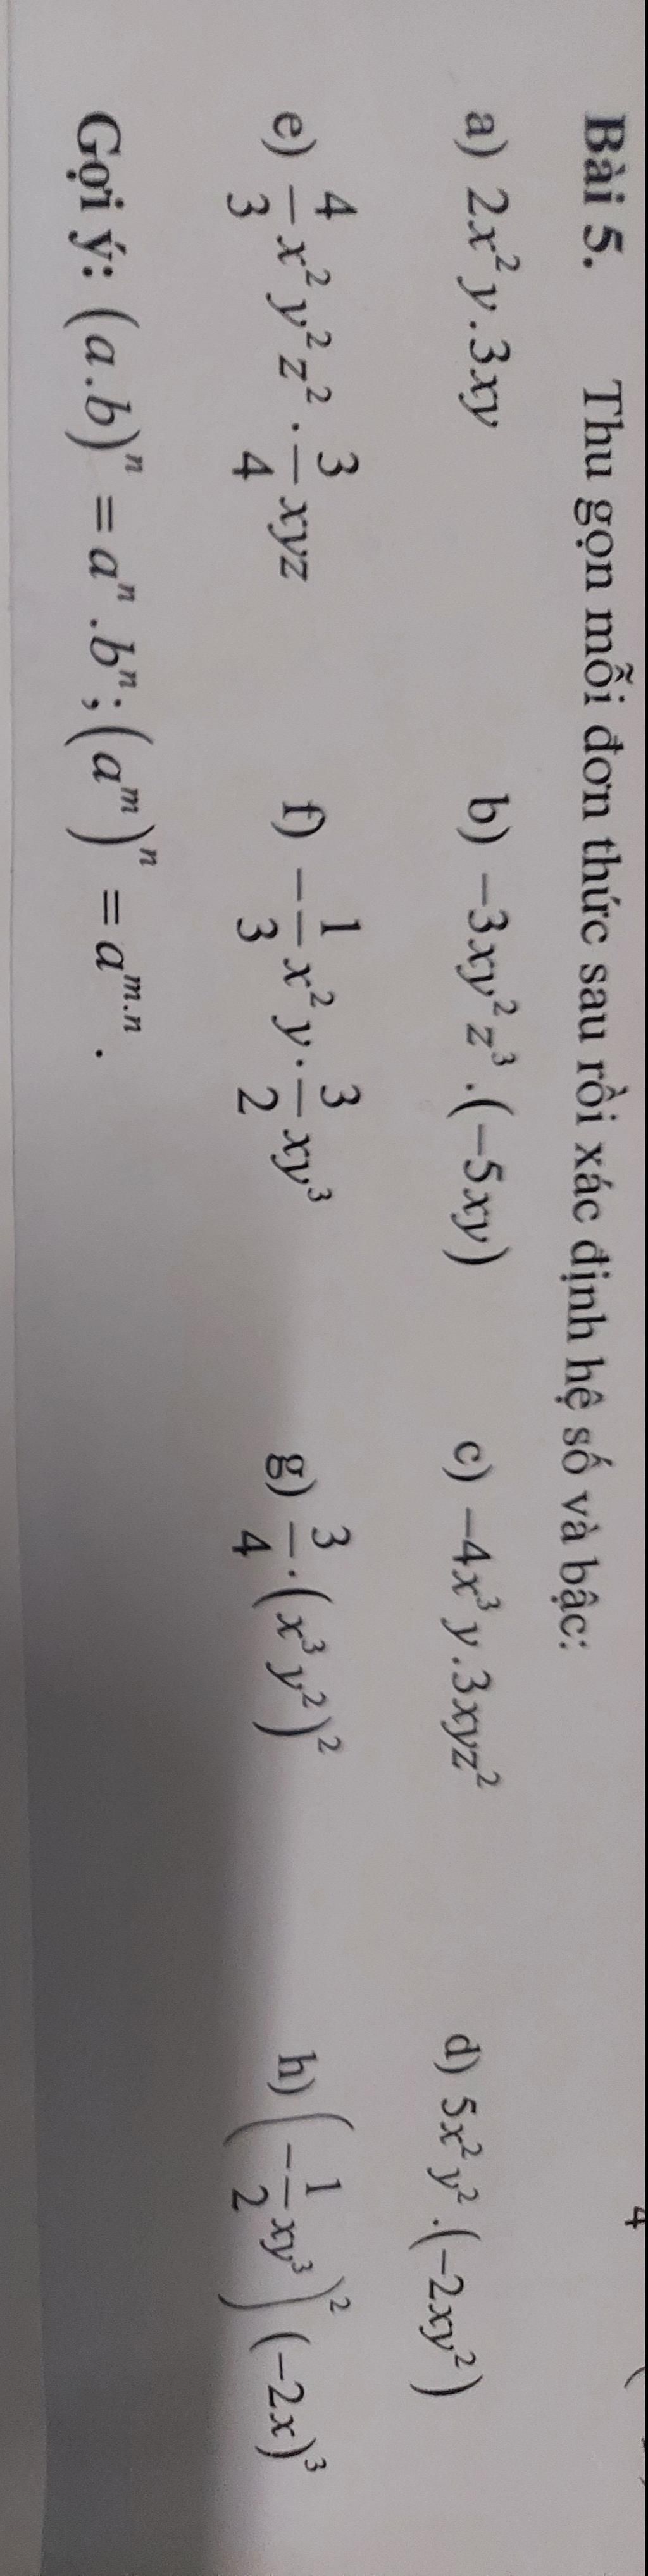 4
Bài 5. Thu gọn mỗi đơn thức sau rồi xác định hệ số và bậc:
a) 2x²y.3xy b) −3xy²z³.(−5xy) c) −4x³y.3xyz² d) 5x²y².(−2xy²)
e) 4/3 x²y²z² . 3/4 xyz f) −1/3 x²y . 3/2 xy³ g) 3/4 .(x³y²)² h) (−1/2 xy³)² (−2x)³
Gợi ý: (a.b)ⁿ = aⁿ.bⁿ; (aᵐ)ⁿ = aᵐ·ⁿ.